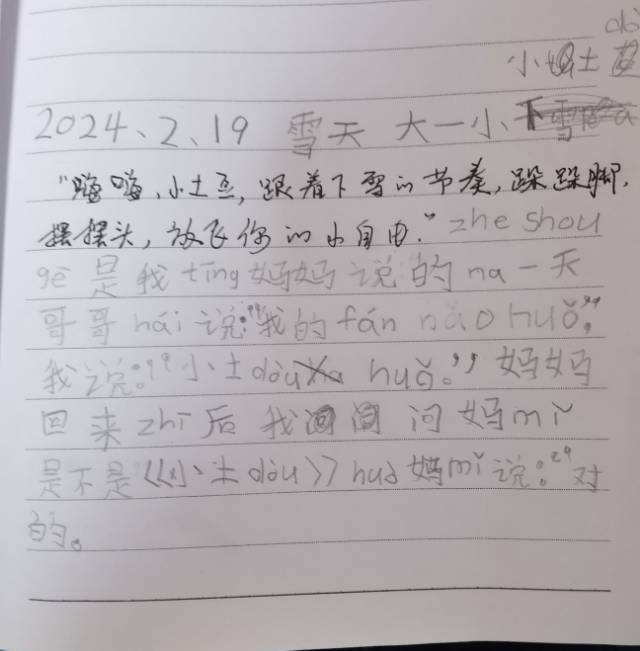 dòu
小土豆
2024、2、19 雪天 大一小
“嗨嗨、小土豆，跟着下雪的节奏，跺跺脚，
摆摆头，放飞你的小自由.” zhe shou
gē是我tīng妈妈说的na一天
哥哥hái说：“我的fán nǎo huǒ”，
我说：“小土dòu huǒ。”妈妈
回来zhī后我 问妈mǐ
是不是《小土dòu》huǒ妈mǐ说：“对
的。